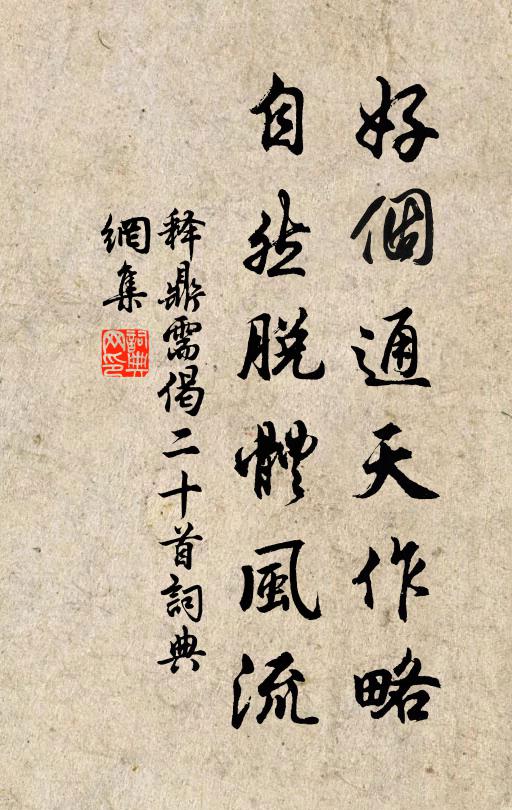 好個通天作略
自然脫體風流
释鼎需偈二十首詞典
網集
詞典
网印